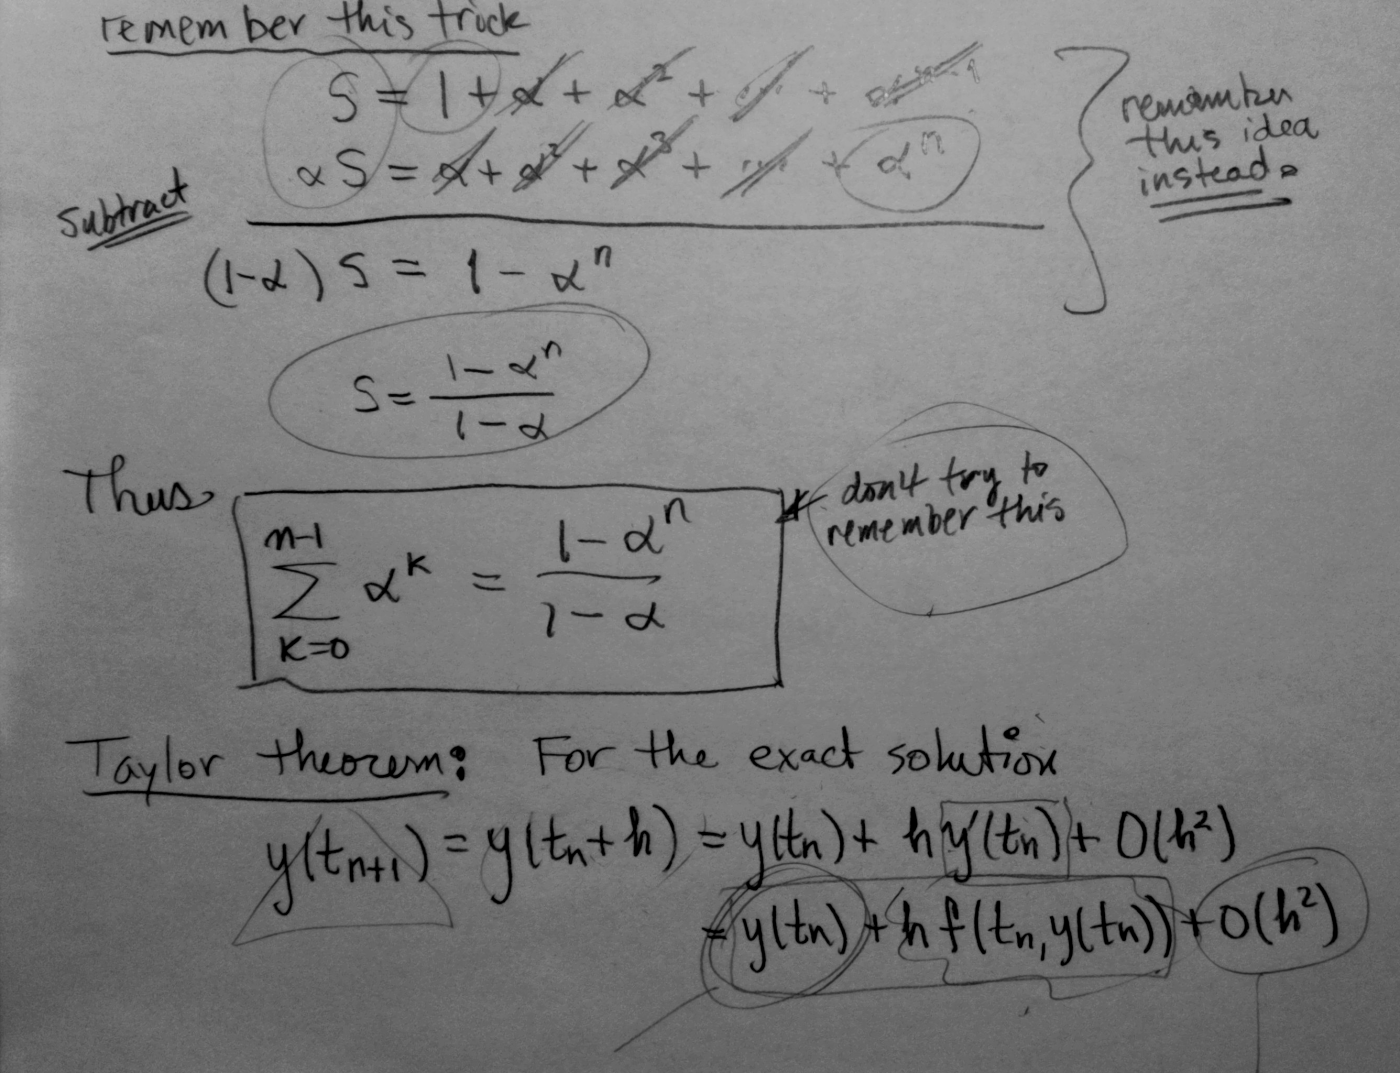 remember this trick
S = 1 + α + α² + ... + αⁿ⁻¹
αS = α + α² + α³ + ... + αⁿ
remember
this idea
instead.
Subtract
(1-α) S = 1 - αⁿ
S = (1 - αⁿ)/(1 - α)
Thus
n-1
∑ αᴷ = (1 - αⁿ)/(1 - α)
K=0
don't try to
remember this
Taylor theorem: For the exact solution
y(tₙ₊₁) = y(tₙ+h) = y(tₙ) + h y'(tₙ) + O(h²)
= y(tₙ) + h f(tₙ, y(tₙ)) + O(h²)